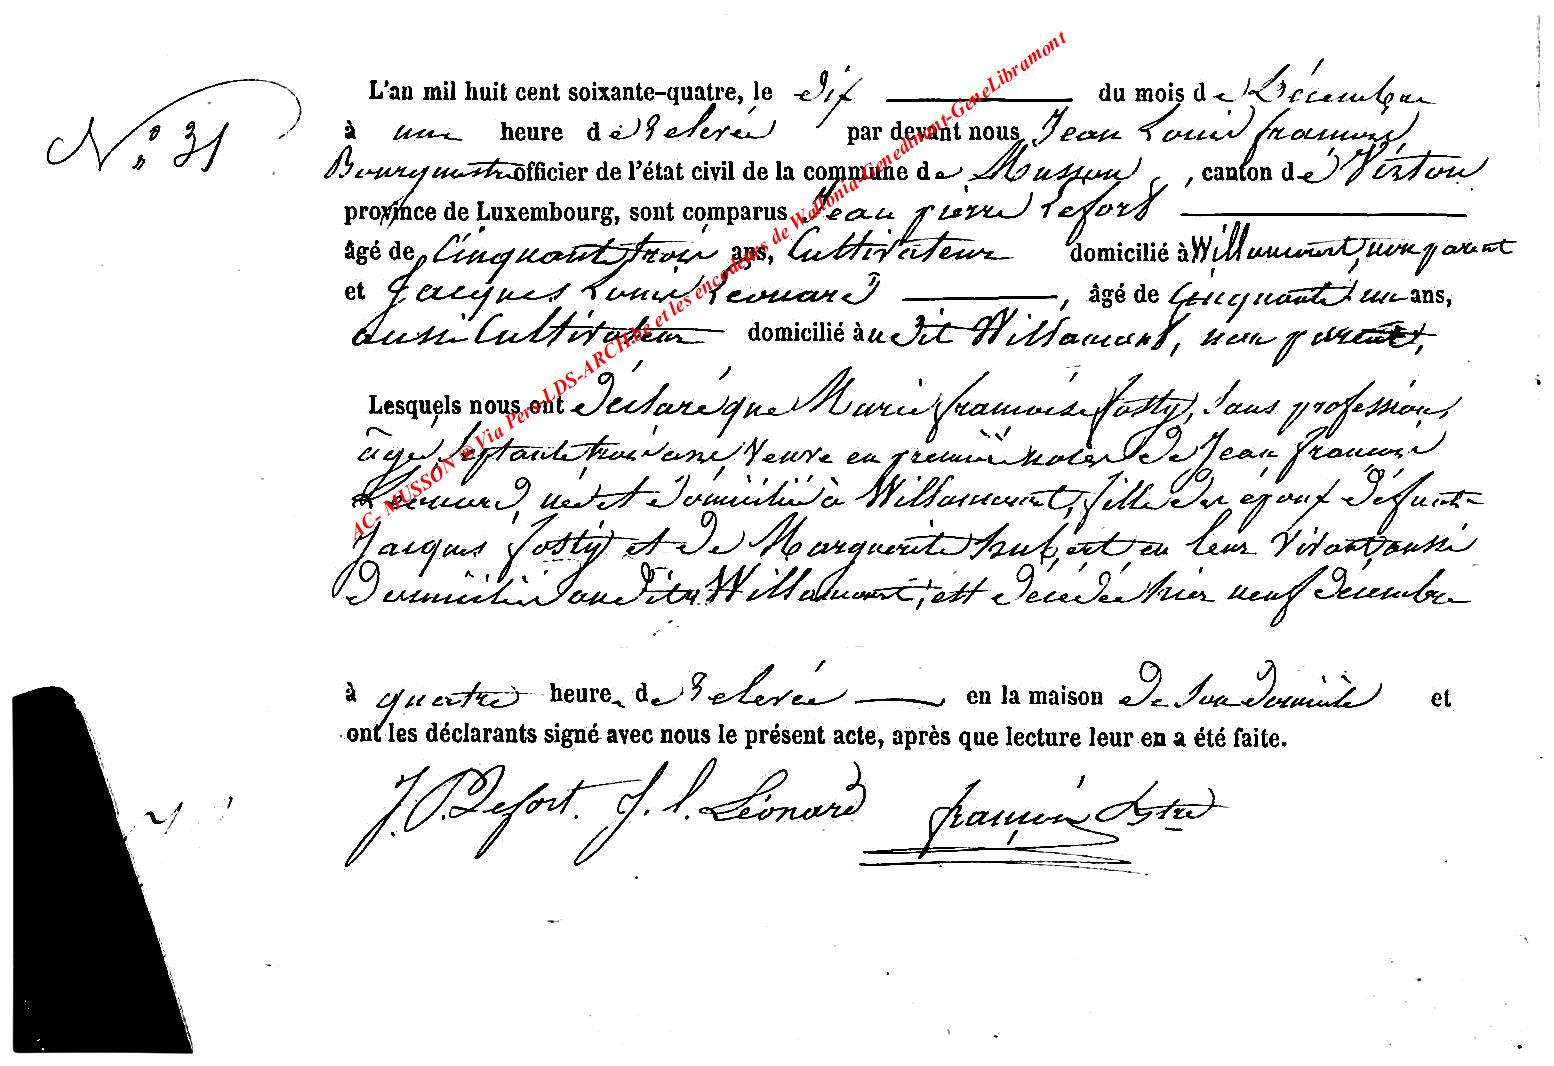 N° 31
L'an mil huit cent soixante-quatre, le dix du mois de Décembre
à une heure de relevée par devant nous Jean Louis françois
Bourgmestre officier de l'état civil de la commune de Musson, canton de Virton
province de Luxembourg, sont comparus Jean pierre Lefort
âgé de Cinquante trois ans, Cultivateur domicilié à Willancourt, non parent
et Jacques Louis Léonard, âgé de cinquante un ans,
aussi Cultivateur domicilié au dit Willancourt, non parent,
Lesquels nous ont déclaré que Marie françoise Josty, sans profession,
âgée septante trois ans, Veuve en première noces de Jean françois
Léonard, née et domiciliée à Willancourt, fille des époux défunts
Jacques Josty et de Marguerite hubert en leur vivant aussi
domiciliés au dit Willancourt, est décédée hier neuf décembre
à quatre heures de relevée en la maison de son domicile et
ont les déclarants signé avec nous le présent acte, après que lecture leur en a été faite.
J. P. Lefort. J. l. Léonard françois
AC- MUSSON @ Via Pero-LDS-ARCH.be et les encodeurs de Wallonia-Genedinant-GeneLibramont